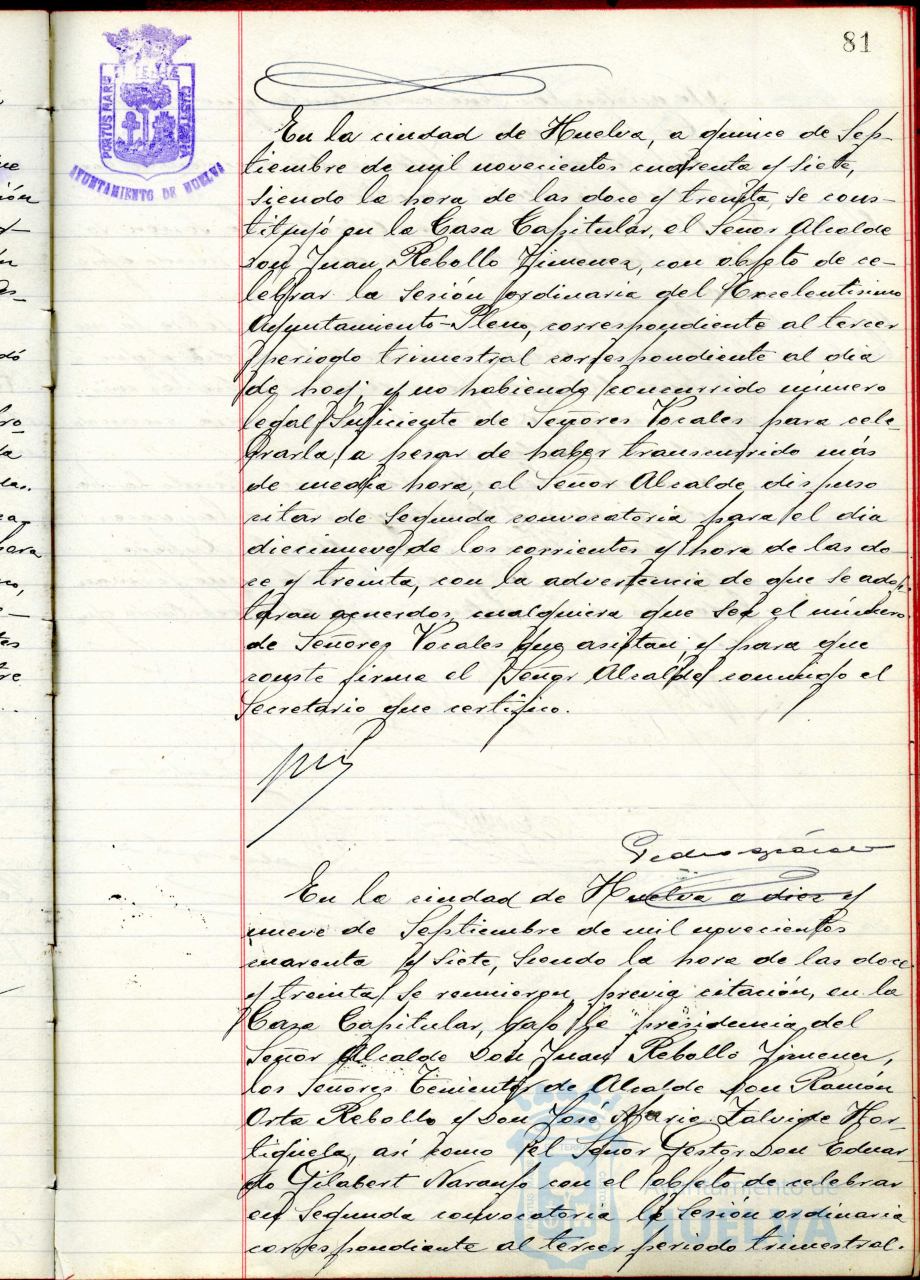 81
PORTUS MARIS
ET TERRÆ
CUSTODIA
AYUNTAMIENTO DE HUELVA
En la ciudad de Huelva, a quince de Sep-
tiembre de mil novecientos cuarenta y siete,
siendo la hora de las doce y treinta, se cons-
tituyó en la Casa Capitular, el Señor Alcalde
Don Juan Rebollo Jimenez, con objeto de ce-
lebrar la sesión ordinaria del Excelentísimo
Ayuntamiento-Pleno, correspondiente al tercer
periodo trimestral correspondiente al dia
de hoy; y no habiendo concurrido número
legal suficiente de Señores Vocales para cele-
brarla, a pesar de haber transcurrido más
de media hora, el Señor Alcalde dispuso
citar de segunda convocatoria para el dia
diecinueve de los corrientes y hora de las do-
ce y treinta, con la advertencia de que se adop-
taran acuerdos, cualquiera que sea el número
de Señores Vocales que asistan; y para que
conste firma el Señor Alcalde conmigo el
Secretario que certifico.
En la ciudad de Huelva a diez y
nueve de Septiembre de mil novecientos
cuarenta y siete, siendo la hora de las doce
y treinta se reunieron, previa citación, en la
Casa Capitular, bajo la presidencia del
Señor Alcalde Don Juan Rebollo Jimenez,
los Señores Tenientes de Alcalde Don Ramón
Orta Rebollo y Don José Maria Zalvide Hor-
tigüela, así como el Señor Gestor Don Eduar-
do Gilabert Naranjo con el objeto de celebrar
en segunda convocatoria la sesión ordinaria
correspondiente al tercer periodo trimestral.
Ayuntamiento de
HUELVA